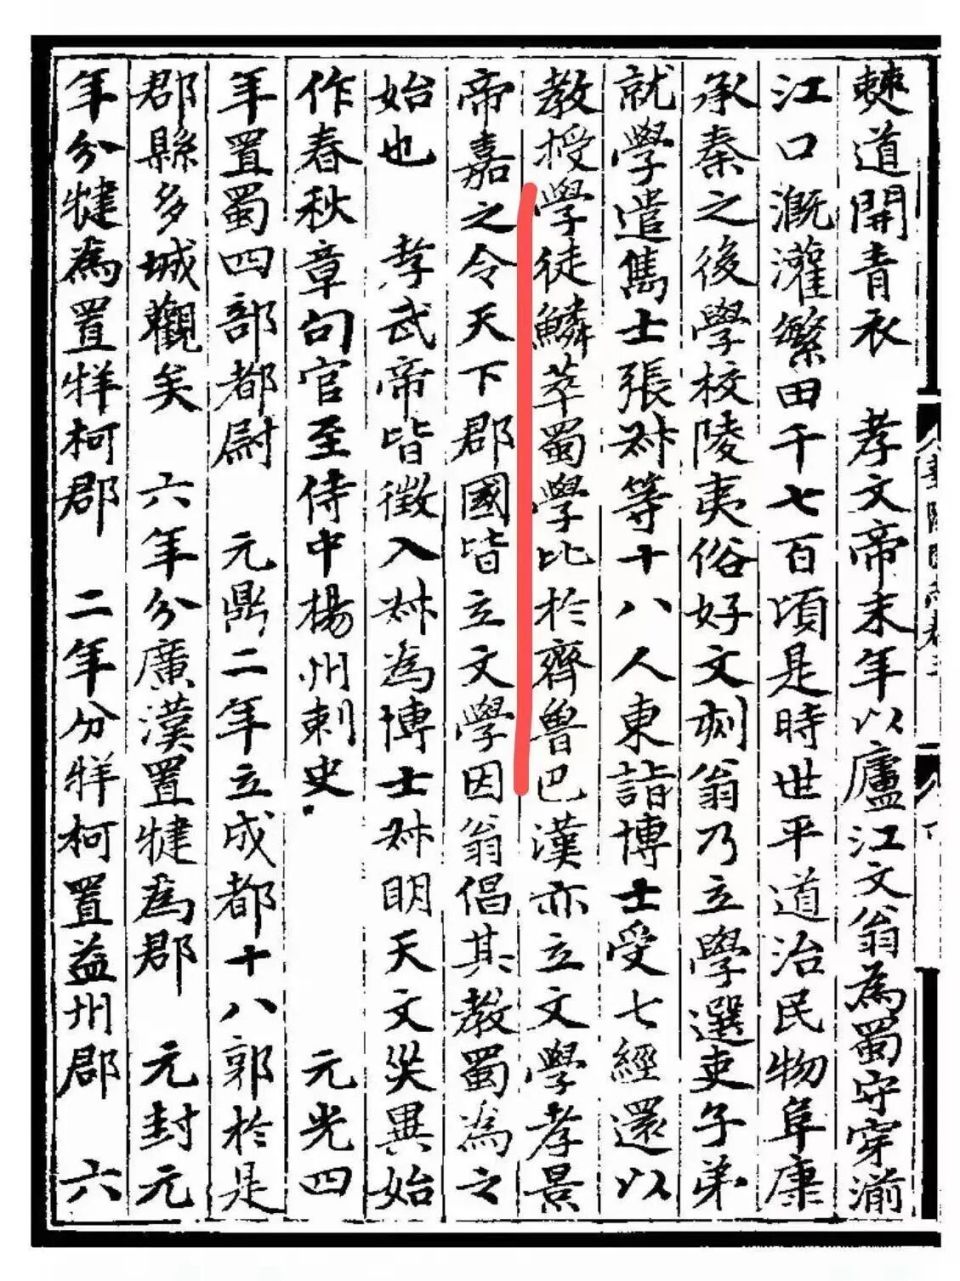 𣗥道開青衣　孝文帝末年以廬江文翁為蜀守穿湔
江口溉灌繁田千七百頃是時世平道治民物阜康
承秦之後學校陵夷俗好文刻翁乃立學選吏子弟
就學遣雋士張叔等十八人東詣博士受七經還以
教授學徒鱗萃蜀學比於齊魯巴漢亦立文學孝景
帝嘉之令天下郡國皆立文學因翁倡其教蜀為之
始也　孝武帝皆徵入叔為博士叔明天文災異始
作春秋章句官至侍中楊州刺史　元光四
年置蜀四部都尉　元鼎二年立成都十八郭於是
郡縣多城觀矣　六年分廣漢置犍為郡　元封元
年分犍為置牂柯郡　二年分牂柯置益州郡　六